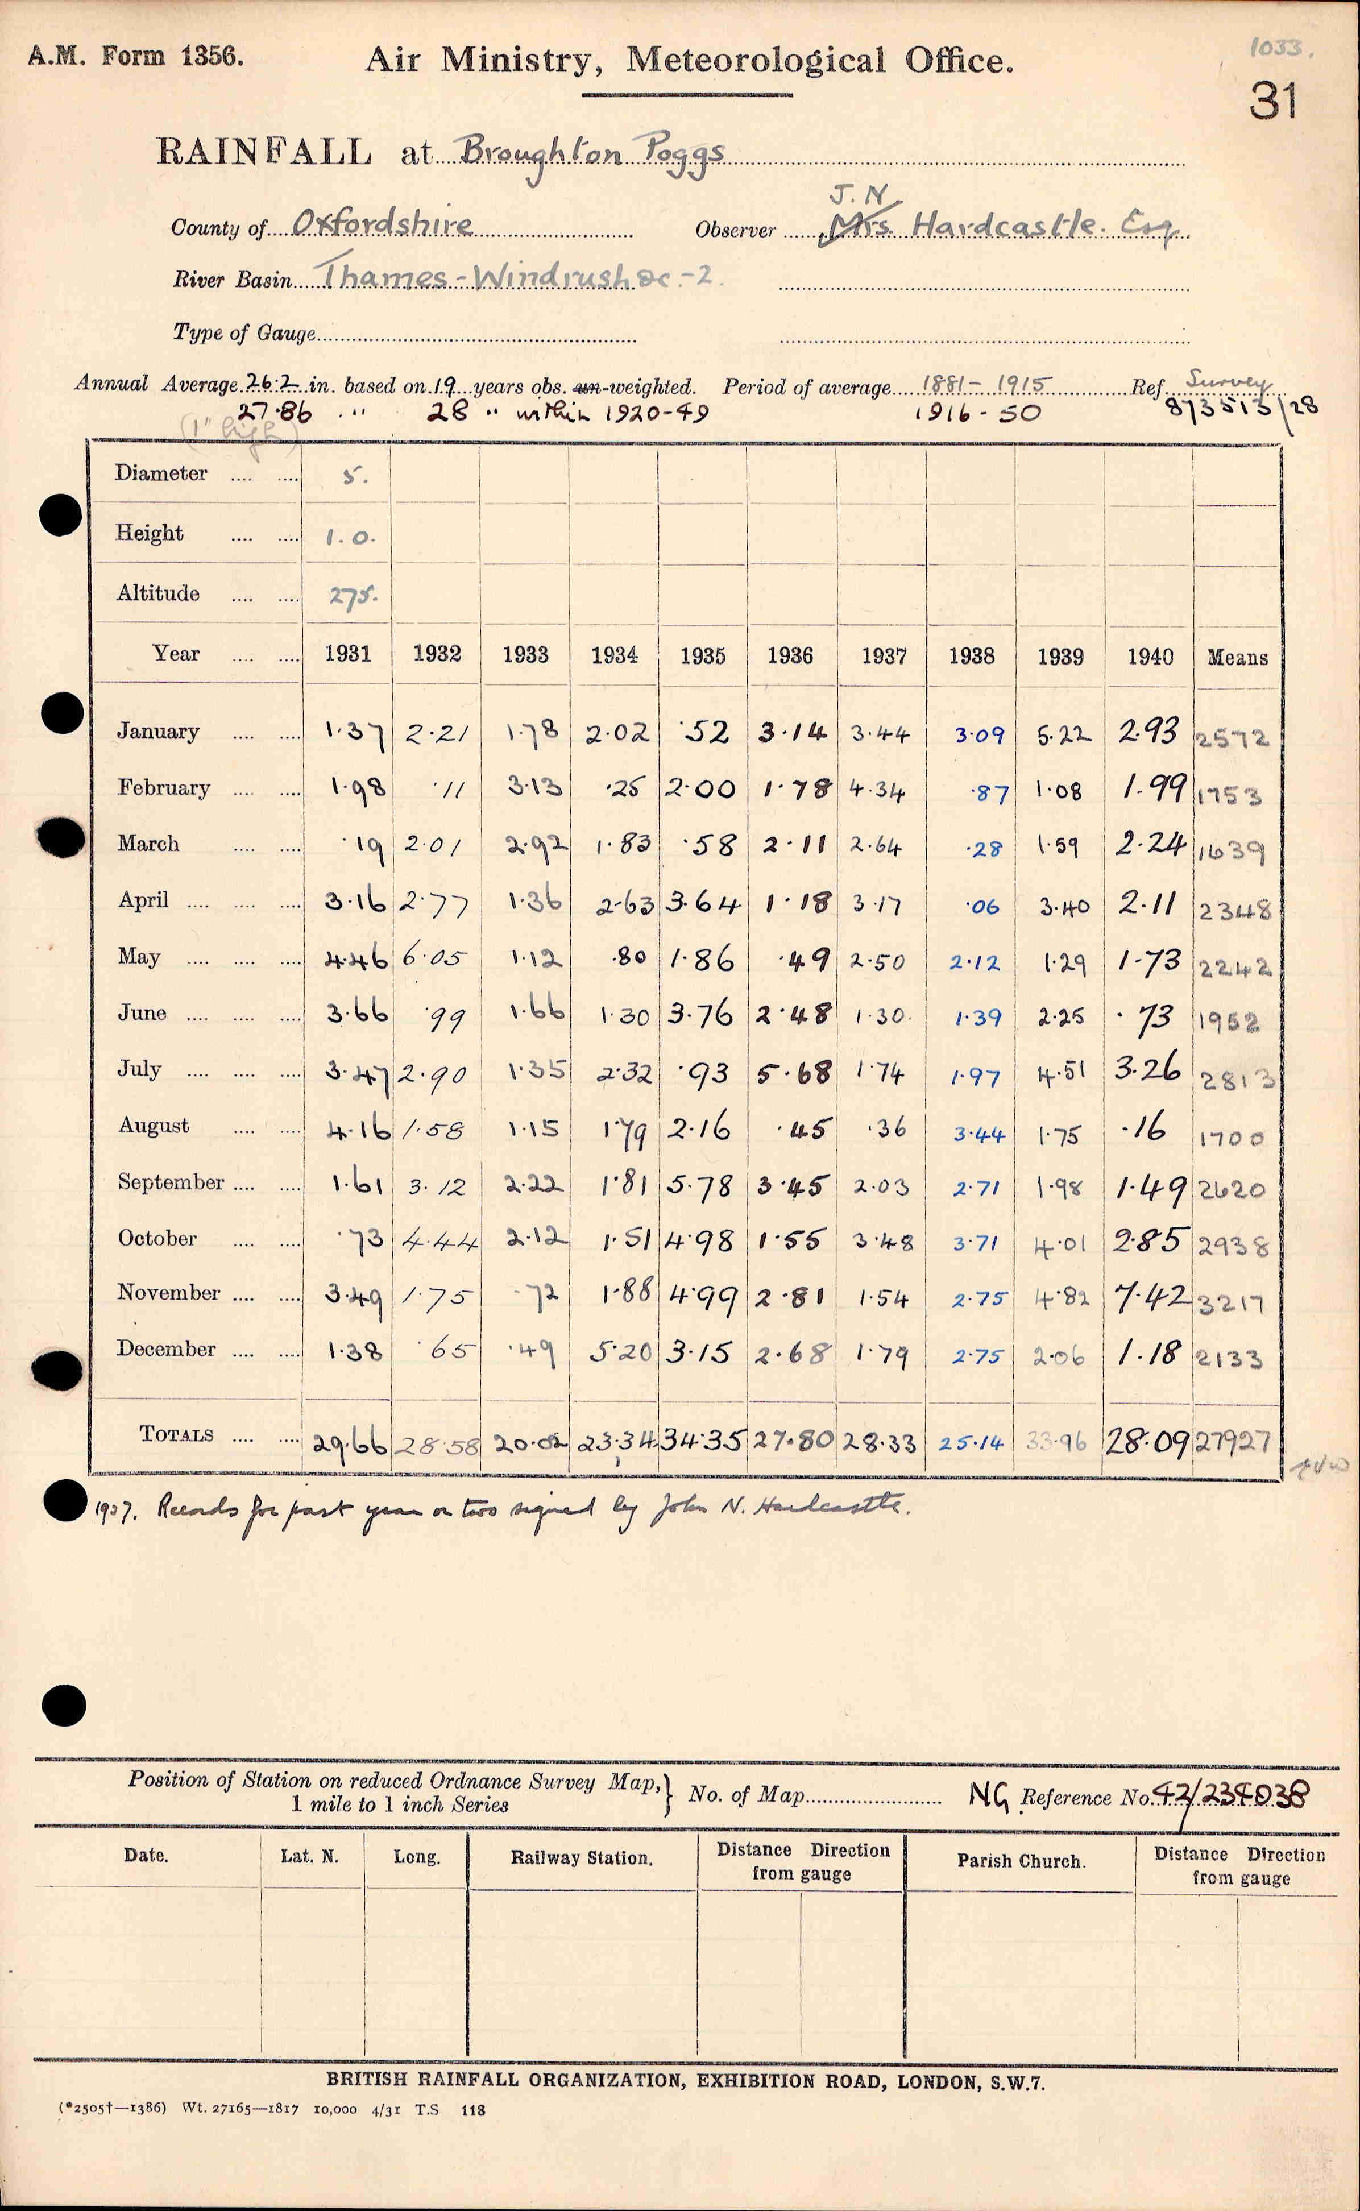 1033.
A.M. Form 1356. Air Ministry, Meteorological Office.
31
RAINFALL at Broughton Poggs
J. N
County of Oxfordshire Observer Mrs Hardcastle. Esq.
River Basin Thames-Windrush &c.-2.
Type of Gauge
Annual Average 26.2 in. based on 19 years obs. un-weighted. Period of average 1881-1915 Ref. Survey
27.86 " 28 " within 1920-49 1916-50 873513/28
(1" high)
Diameter .... .... 5.
Height .... .... 1.0.
Altitude .... .... 275.
Year .... .... 1931 1932 1933 1934 1935 1936 1937 1938 1939 1940 Means
January .... .... 1.37 2.21 1.78 2.02 .52 3.14 3.44 3.09 5.22 2.93 2572
February .... .... 1.98 .11 3.13 .25 2.00 1.78 4.34 .87 1.08 1.99 1753
March .... .... .19 2.01 2.92 1.83 .58 2.11 2.64 .28 1.59 2.24 1639
April .... .... .... 3.16 2.77 1.36 2.63 3.64 1.18 3.17 .06 3.40 2.11 2348
May .... .... .... 4.46 6.05 1.12 .80 1.86 .49 2.50 2.12 1.29 1.73 2242
June .... .... .... 3.66 .99 1.66 1.30 3.76 2.48 1.30 1.39 2.25 .73 1952
July .... .... .... 3.47 2.90 1.35 2.32 .93 5.68 1.74 1.97 4.51 3.26 2813
August .... .... 4.16 1.58 1.15 1.79 2.16 .45 .36 3.44 1.75 .16 1700
September .... .... 1.61 3.12 2.22 1.81 5.78 3.45 2.03 2.71 1.98 1.49 2620
October .... .... .73 4.44 2.12 1.51 4.98 1.55 3.48 3.71 4.01 2.85 2938
November .... .... 3.49 1.75 .72 1.88 4.99 2.81 1.54 2.75 4.82 7.42 3217
December .... .... 1.38 .65 .49 5.20 3.15 2.68 1.79 2.75 2.06 1.18 2133
TOTALS .... .... 29.66 28.58 20.02 23.34 34.35 27.80 28.33 25.14 33.96 28.09 27927
1937. Records for past year or two signed by John N. Hardcastle.
Position of Station on reduced Ordnance Survey Map,} No. of Map NG Reference No. 42/234038
1 mile to 1 inch Series
Date. Lat. N. Long. Railway Station. Distance Direction from gauge Parish Church. Distance Direction from gauge
BRITISH RAINFALL ORGANIZATION, EXHIBITION ROAD, LONDON, S.W.7.
(*2505†—1386) Wt. 27165—1817 10,000 4/31 T.S 118